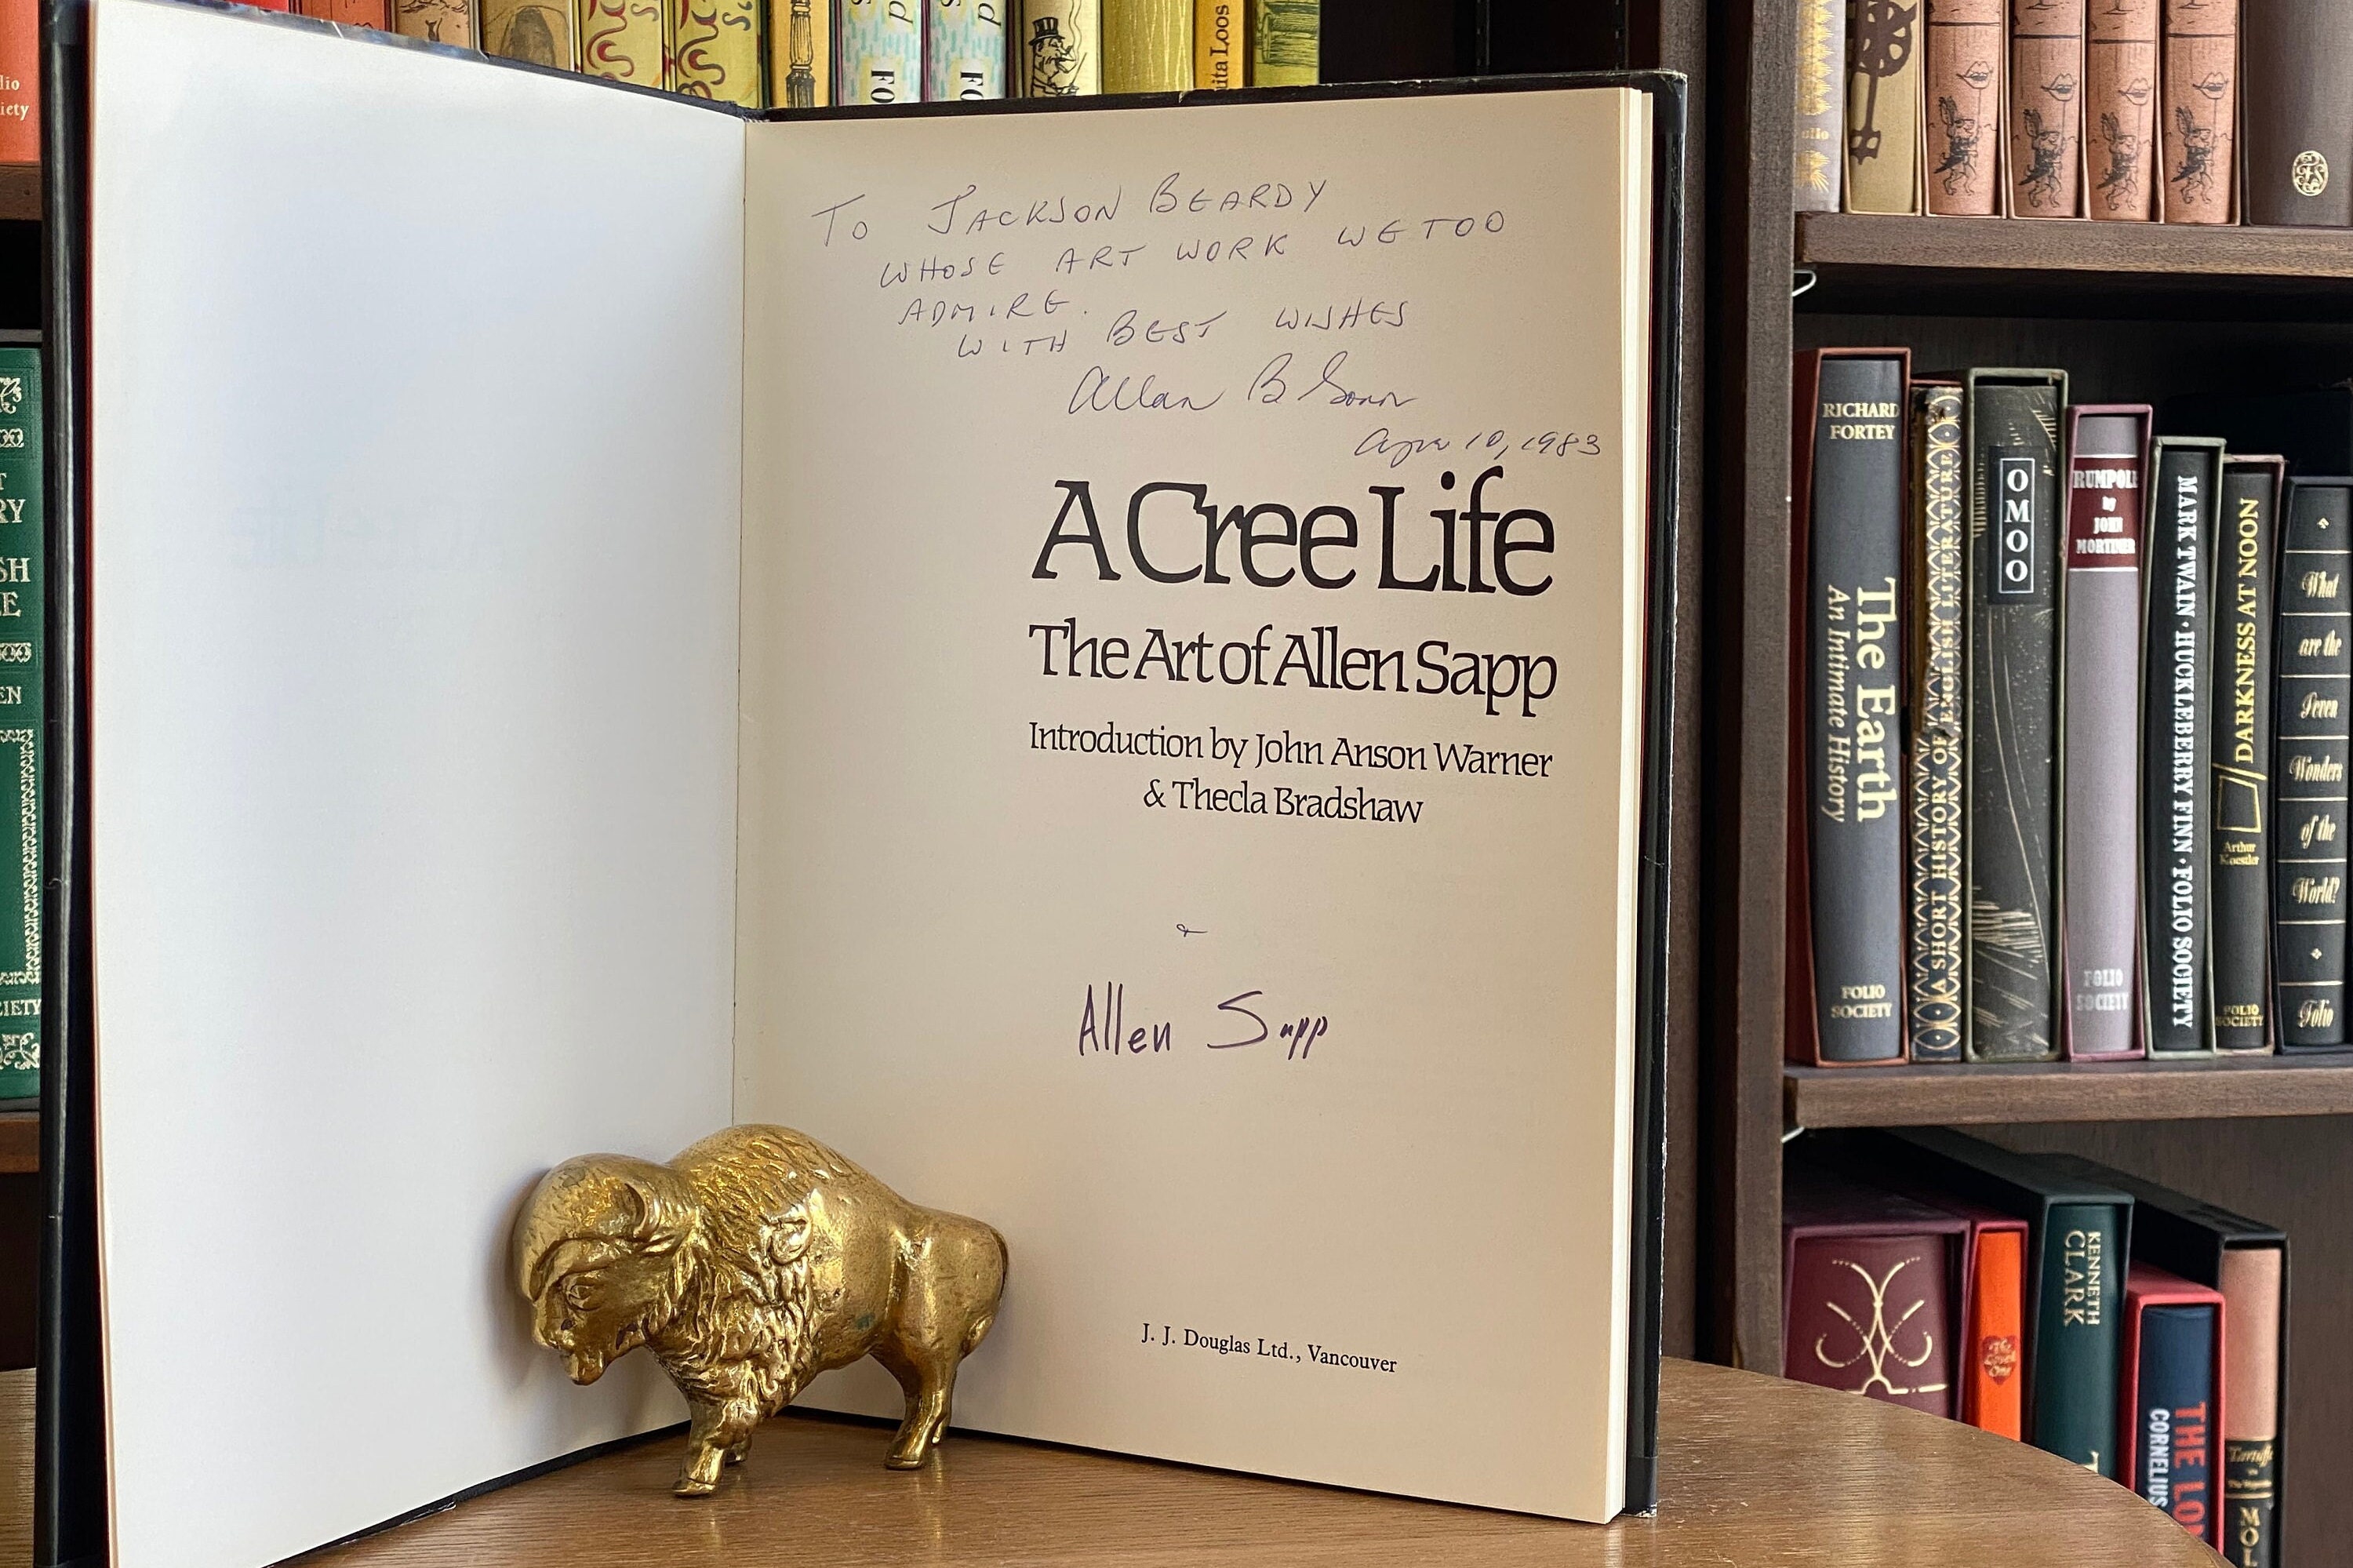 To JACKSON BEARDY
WHOSE ART WORK WE TOO
ADMIRE.
WITH BEST WISHES
Allan B
10, 1983
A Cree Life
The Art of Allen Sapp
Introduction by John Anson Warner
& Thecla Bradshaw
&
Allen Sapp
J. J. Douglas Ltd., Vancouver
RICHARD
FORTEY
The Earth
An Intimate History
FOLIO
SOCIETY
A SHORT HISTORY OF ENGLISH LITERATURE
OMOO
RUMPOLE
by
JOHN
MORTIMER
FOLIO
SOCIETY
MARK TWAIN · HUCKLEBERRY FINN · FOLIO SOCIETY
DARKNESS AT NOON
Arthur
Koestler
FOLIO
SOCIETY
What
are the
Seven
Wonders
of the
World?
Folio
KENNETH
CLARK
CORNELIUS